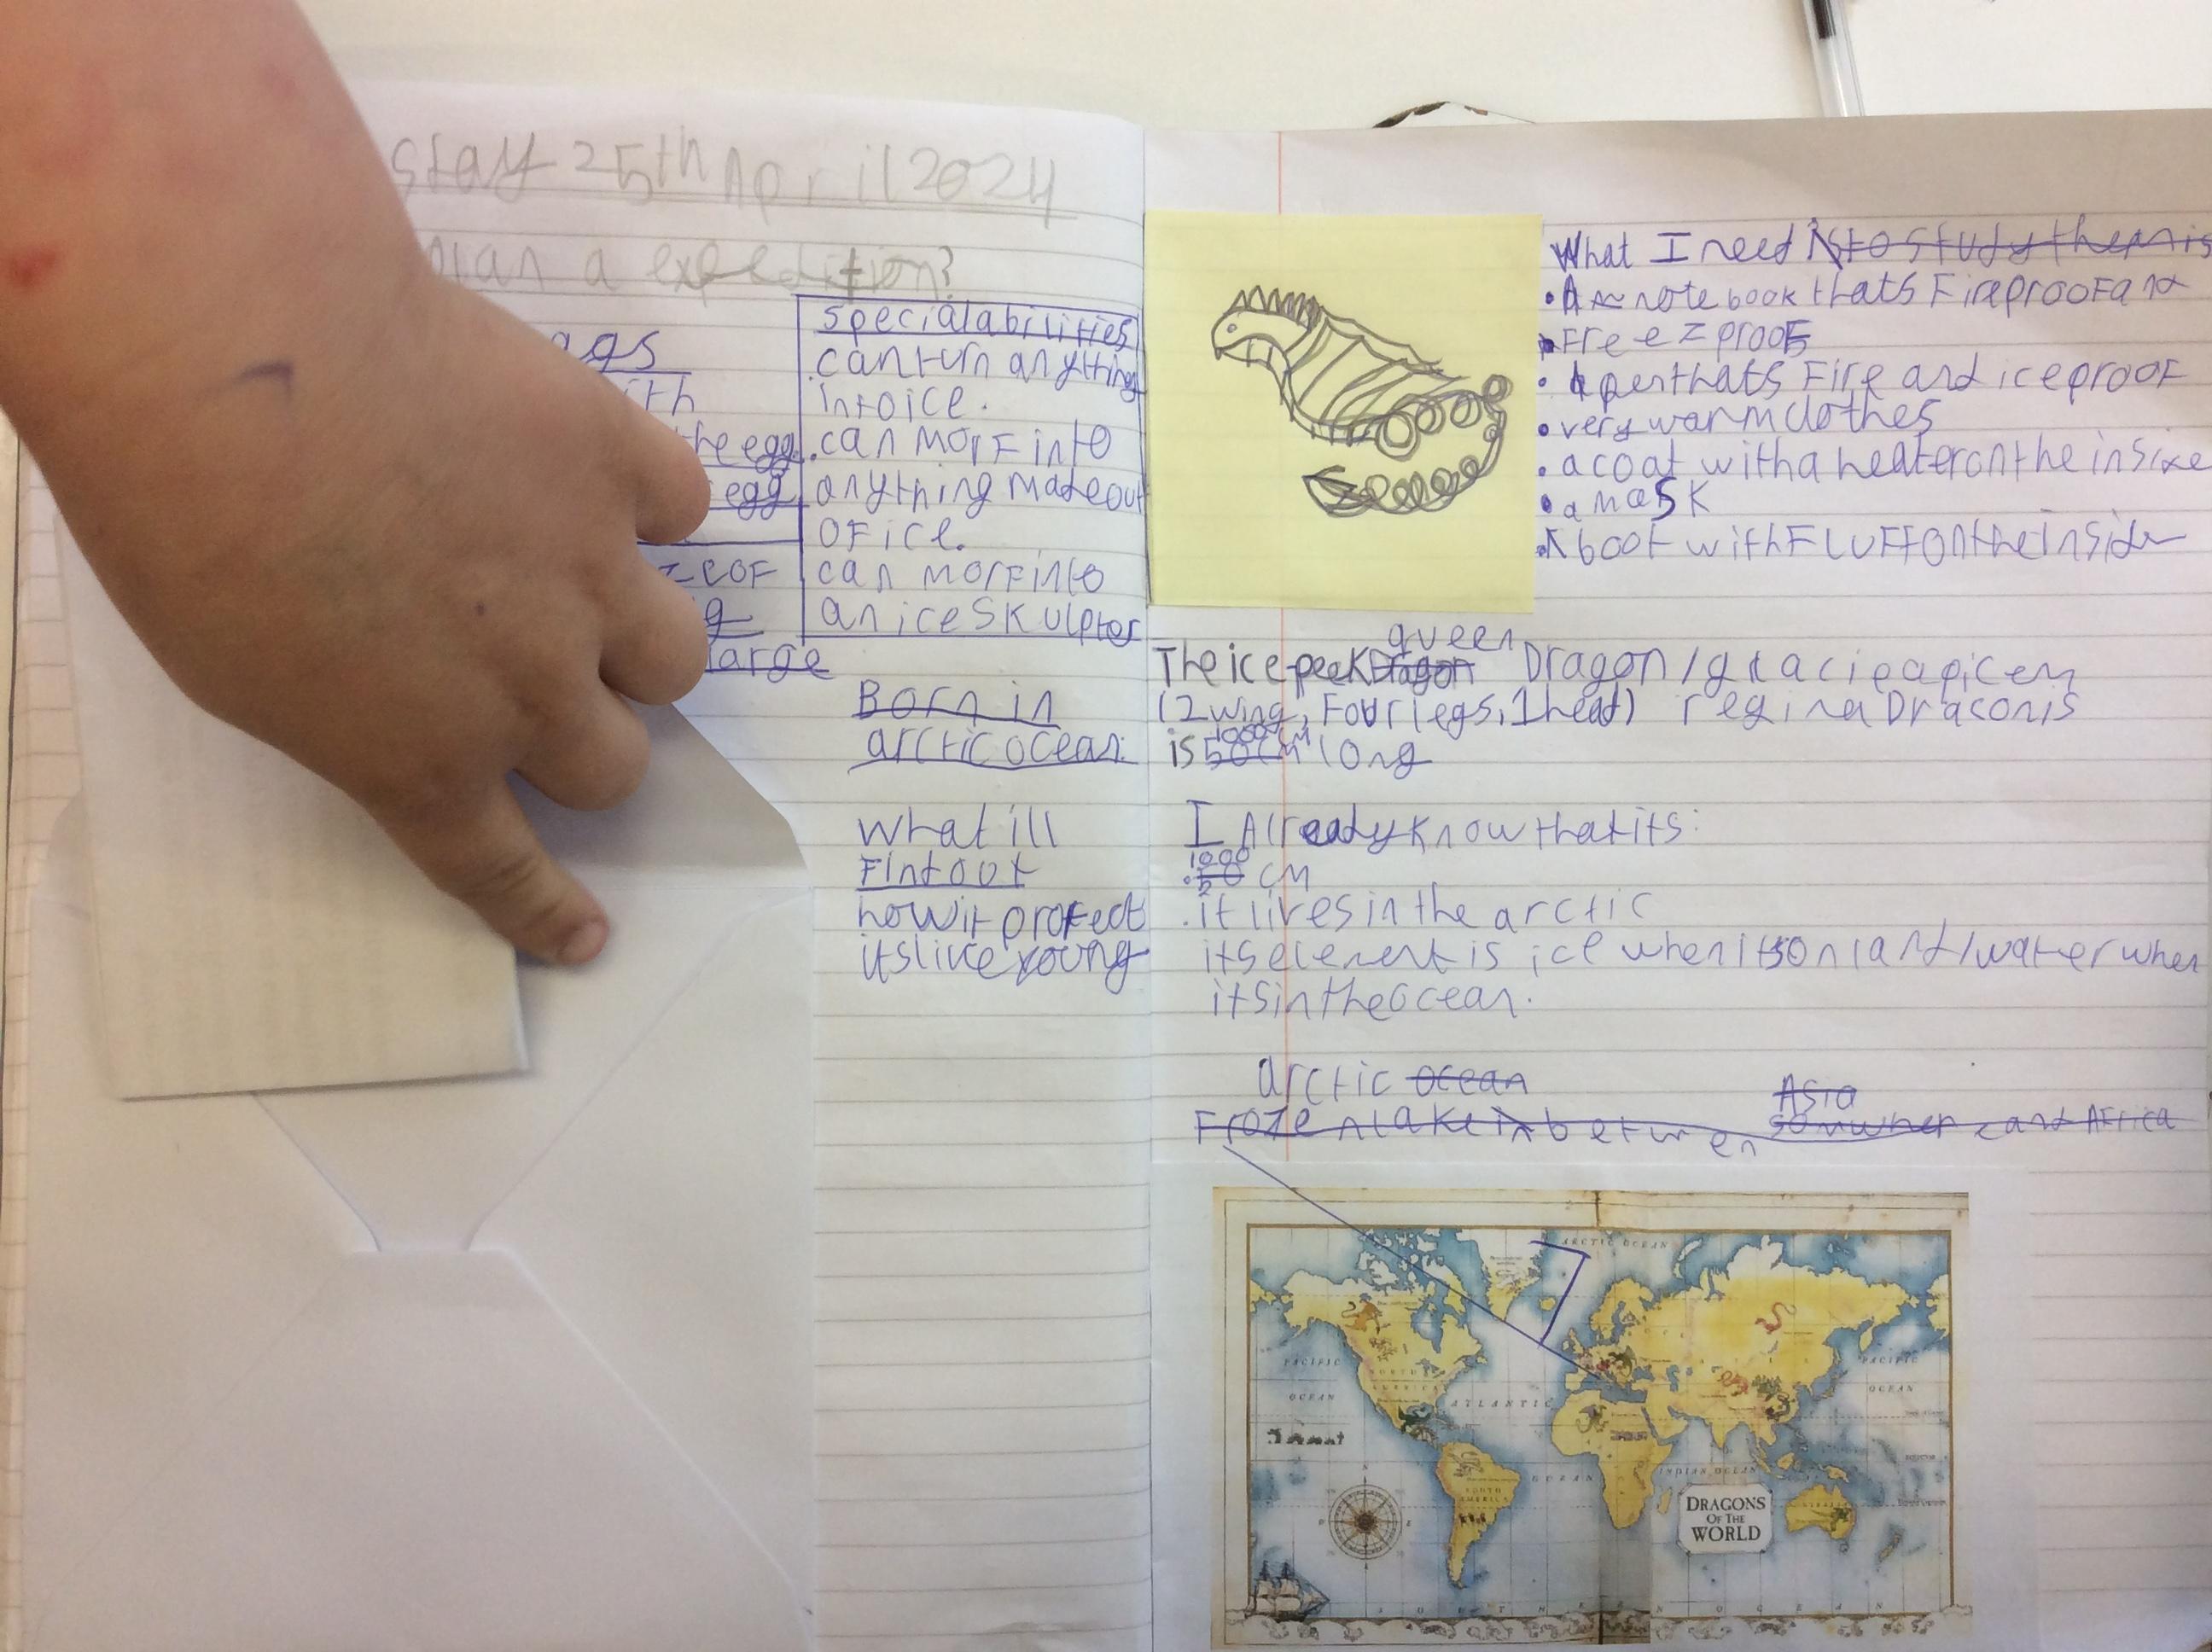 25th April 2024
plan a expedition?
ags
ith
the egg.
egg
ze of
large
special abilities
.can turn anything
into ice.
.can morf into
anything made out
of ice.
can morf into
an ice skulpter
Born in
arctic ocean.
what ill
find out
how it protect
its live young
What I need is to study them is
• A note book thats Fireproof and
• Freezproof
• A pen thats Fire and ice proof
• very warm clothes
• a coat with a heater on the inside
• a mask
• A boot with Fluff on the inside
queen
The ice peek Dragon Dragon/glacieapicem
(2 wing, Four legs, 1 head) regina Draconis
1000cm
is 50cm long
I Already know that its:
1000
.50 cm
.it lives in the arctic
its element is ice when its on land/water when
its in the ocean.
arctic ocean
Asia
Frozen lake in between somwhere and Africa
ARCTIC OCEAN
PACIFIC
OCEAN
NORTH
AMERICA
ATLANTIC
OCEAN
PACIFIC
OCEAN
INDIAN OCEAN
SOUTH
AMERICA
DRAGONS
OF THE
WORLD
SOUTHERN OCEAN